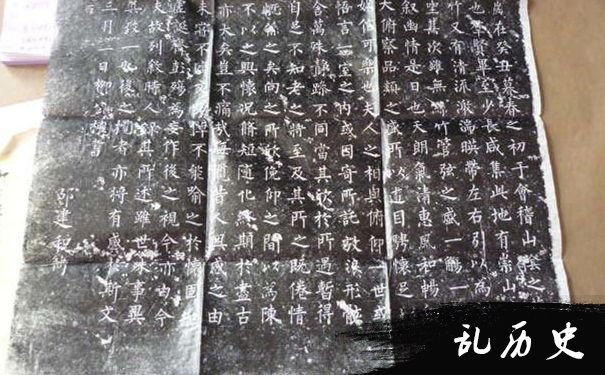 歲在癸丑暮春之初于會稽山陰之
也羣賢畢至少長咸集此地有崇山
竹又有清流激湍映帶左右引以為
坐其次雖無絲竹管弦之盛一觴一
叙幽情是日也天朗氣清惠風和暢
大俯察品類之盛所以遊目騁懷足
娛信可樂也夫人之相與俯仰一世或
悟言一室之內或因寄所託放浪形骸
舍萬殊靜躁不同當其欣於所遇暫得
自足不知老之將至及其所之既倦情
慨係之矣向之所欣俛仰之間以為陳
不以之興懷況脩短隨化終期於盡古
亦大矣豈不痛哉每覽昔人興感之由
未嘗不臨文嗟悼不能喻之於懷固知
虛誕齊彭殤為妄作後之視今亦由今
夫故列敘時人錄其所述雖世殊事異
其致一也後之覽者亦將有感於斯文
三月一日柳公權書
邵建和
乱历史